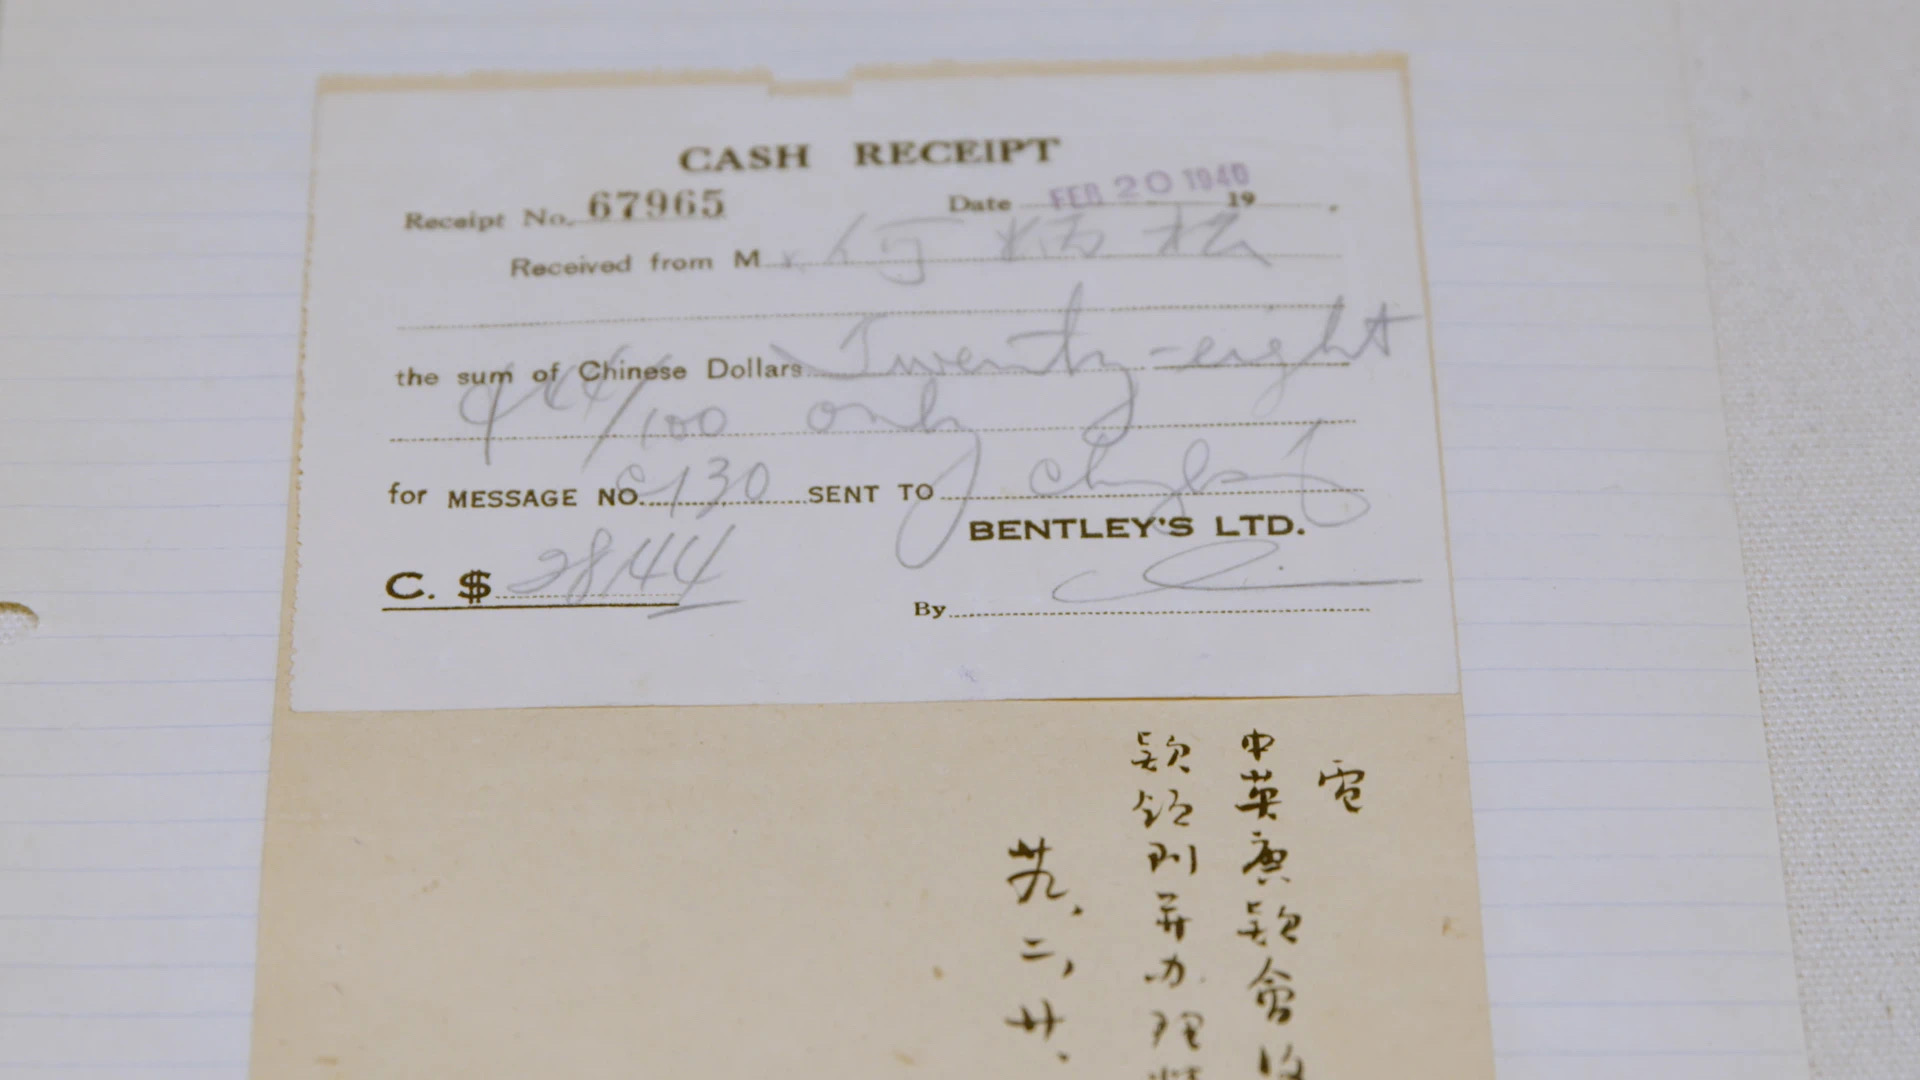 CASH RECEIPT
Receipt No. 67965 Date FEB 20 1940 19
Received from Mr 何炳松
the sum of Chinese Dollars Twenty-eight
& 44/100 only
for MESSAGE NO. C130 SENT TO Chungking
BENTLEY'S LTD.
C. $ 28.44
By
電
中英庚款會
款領到并办理
廿九、二、廿、